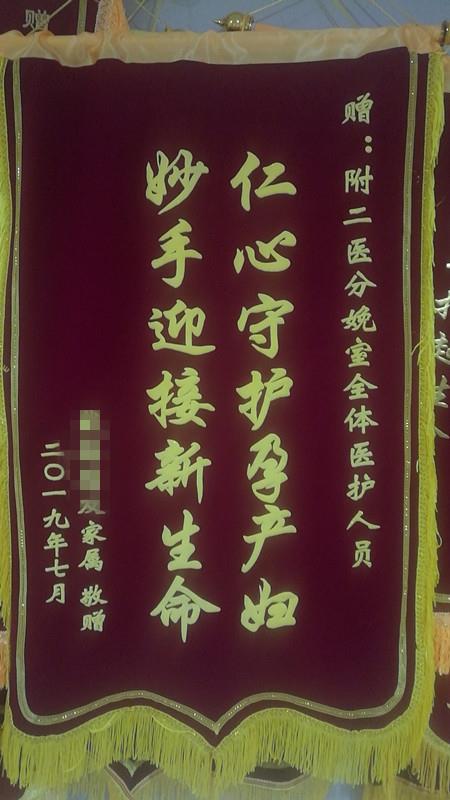 赠：附二医分娩室全体医护人员
仁心守护孕产妇
妙手迎接新生命
及家属 敬赠
二〇一九年七月
赠